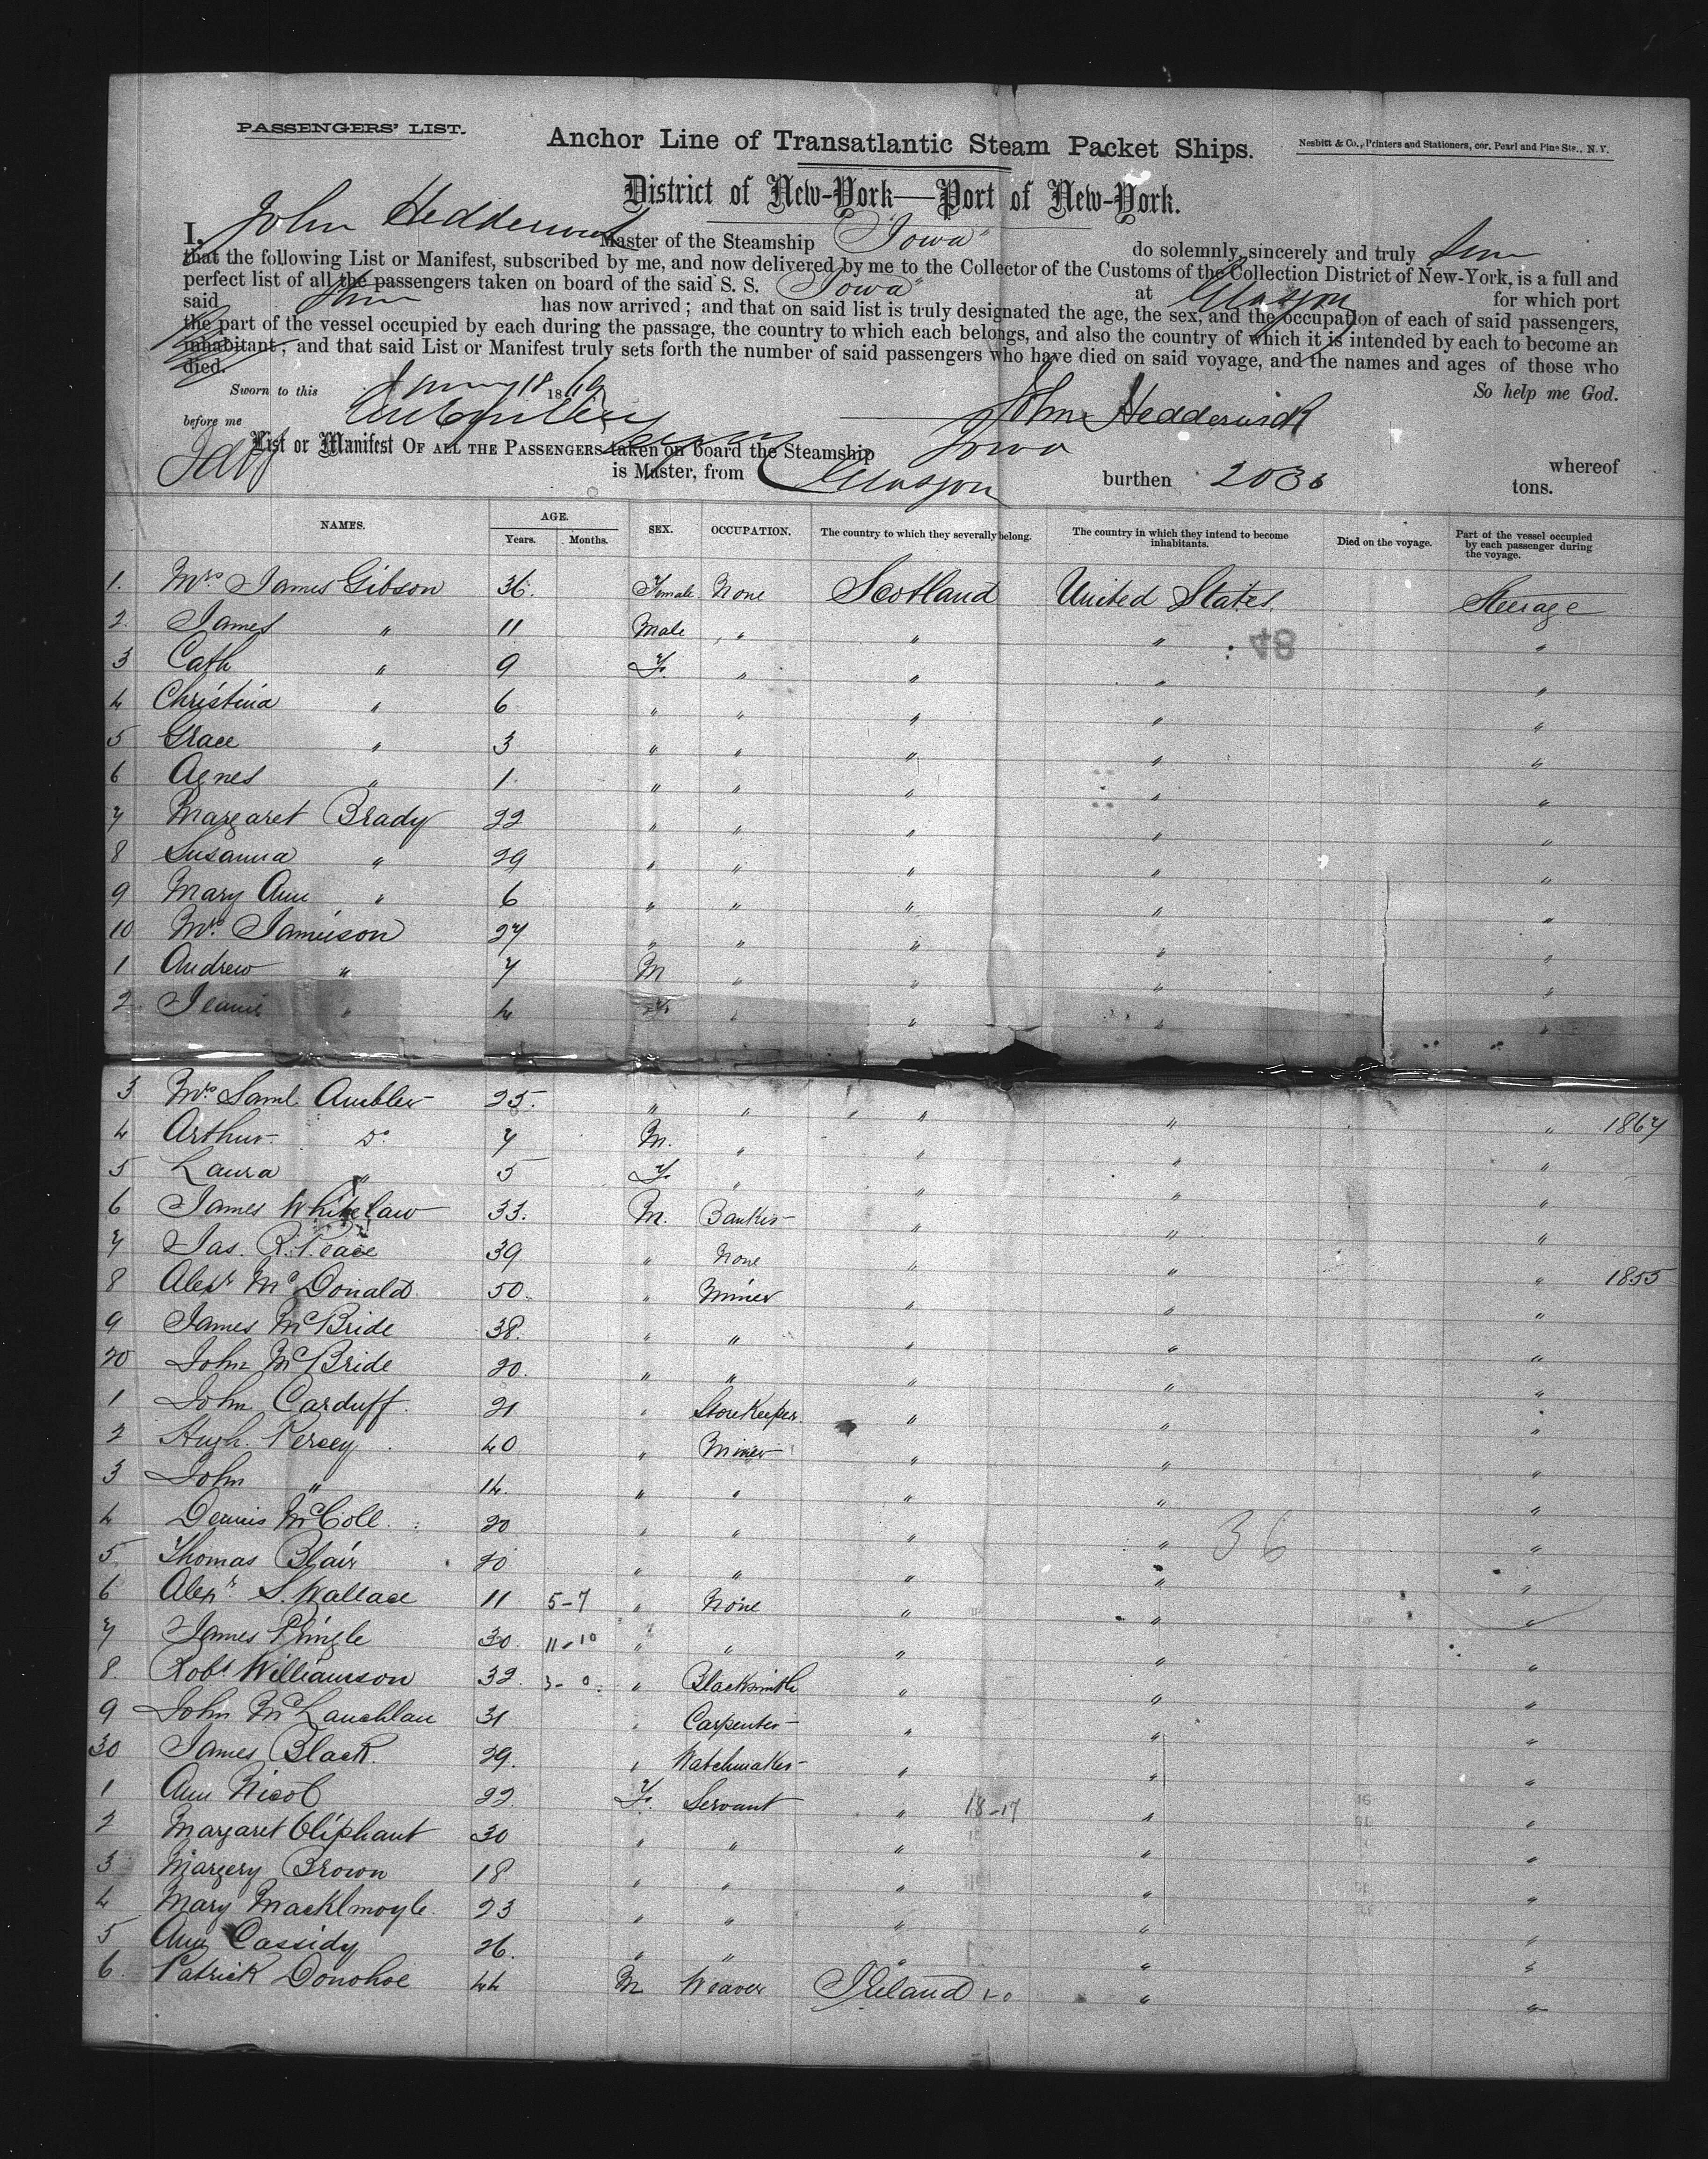 PASSENGERS' LIST.
Anchor Line of Transatlantic Steam Packet Ships.
Nesbitt & Co., Printers and Stationers, cor. Pearl and Pine Sts., N. Y.
District of New-York—Port of New-York.
I, John Hedderwick Master of the Steamship "Iowa" do solemnly, sincerely and truly
that the following List or Manifest, subscribed by me, and now delivered by me to the Collector of the Customs of the Collection District of New-York, is a full and
perfect list of all the passengers taken on board of the said S. S. "Iowa" at Glasgow for which port
said has now arrived; and that on said list is truly designated the age, the sex, and the occupation of each of said passengers,
the part of the vessel occupied by each during the passage, the country to which each belongs, and also the country of which it is intended by each to become an
inhabitant; and that said List or Manifest truly sets forth the number of said passengers who have died on said voyage, and the names and ages of those who
died.
So help me God.
Sworn to this 18 1869
before me
John Hedderwick
List or Manifest OF ALL THE PASSENGERS taken on board the Steamship Iowa whereof
is Master, from Glasgow burthen tons.
NAMES. AGE. Years. Months. SEX. OCCUPATION. The country to which they severally belong. The country in which they intend to become inhabitants. Died on the voyage. Part of the vessel occupied by each passenger during the voyage.
1. Mrs James Gibson 36. Female None Scotland United States Steerage
2. James " 11 Male " " " "
84
3 Cath " 9 F. " " " "
4 Christina " 6 " " " " "
5 Grace " 3 " " " " "
6 Agnes " 1. " " " " "
7 Margaret Brady 22 " " " " "
8 Susanna " 29 " " " " "
9 Mary Ann " 6 " " " " "
10 Mrs Jamieson 27 " " " " "
1 Andrew " 7 M " " " "
2 Jeanie " 4 F. " " " "
3 Mrs Saml. Ambler 25. " " " " " 1867
4 Arthur Do 7 M. " " " "
5 Laura " 5 F. " " " "
6 James Whitelaw 33. M. Banker " " "
7 Jas. R. Peace 39 " None " " " 1855
8 Alexr McDonald 50. " Miner " " "
9 James McBride 38. " " " " "
20 John McBride 20. " " " " "
1 John Carduff. 21 " StoreKeeper. " " "
2 Hugh Persey 40 " Miner " " "
3 John " 14. " " " " "
4 Dennis McColl 20 " " " " "
36
5 Thomas Blair 20 " " " " "
6 Alexr S. Wallace 11 5-7 " None " " "
7 James Pringle 30. 11-10 " " " " "
8. Robt Williamson 32. 3-0 " Blacksmith " " "
9 John McLauchlan 31 " Carpenter " " "
30 James Black. 29. " Watchmaker " " "
1 Ann Nicol 22 F. Servant " 18-17 " "
2 Margaret Oliphant 30 " " " " "
3 Margery Brown 18 " " " " "
4 Mary Macklmoyle 23 " " " " "
5 Ann Cassidy 26. " " " " "
6. Patrick Donohoe 44 M Weaver Ireland " "